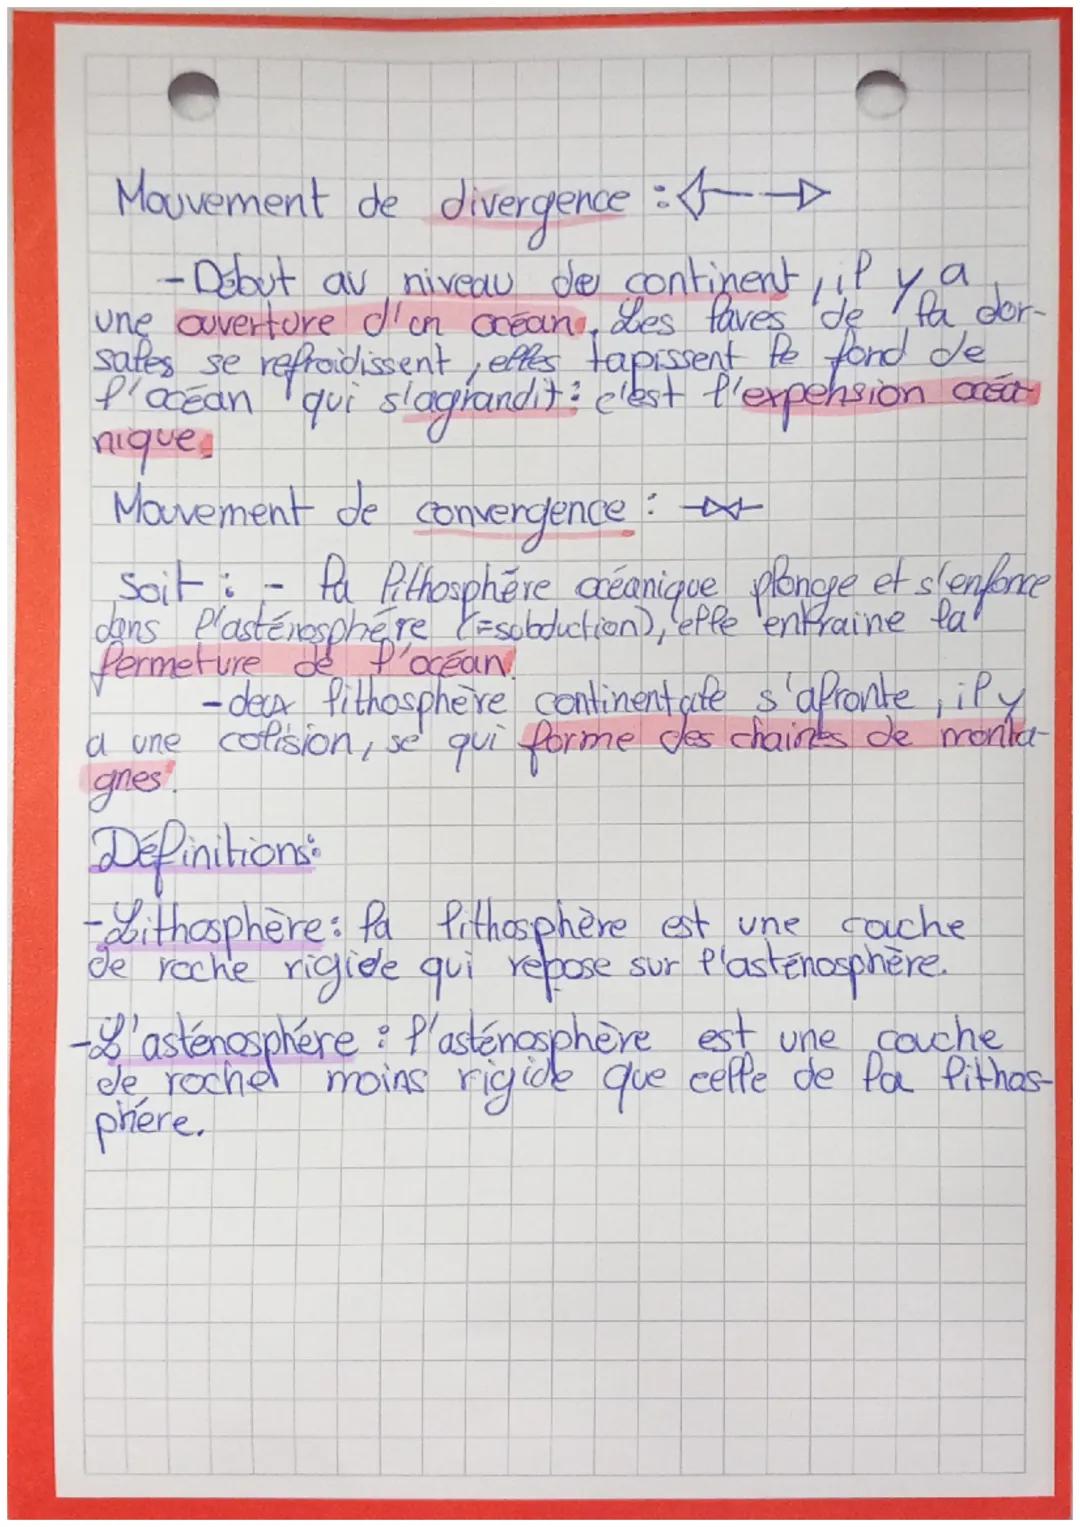 Mouvement de divergence :
- Début au niveau de continent, il y a
une ouverture d'un océan. Les laves de la dor-
sales se refroidissent, elles tapissent le fond de
l'océan qui s'agrandit : c'est l'expension océa-
nique.
Mouvement de convergence :
soit : - la lithosphère océanique plonge et s'enfonce
dans l'asténosphére (=subduction), elle entraine la
fermeture de l'océan.
- deux lithosphère continentale s'afronte, il y
a une colision, se qui forme des chaines de monta-
gnes.
Définitions :
- Lithosphère : la lithosphère est une couche
de roche rigide qui repose sur l'asténosphère.
- L'asténosphére : l'asténosphère est une couche
de roche moins rigide que celle de la lithos-
phére.